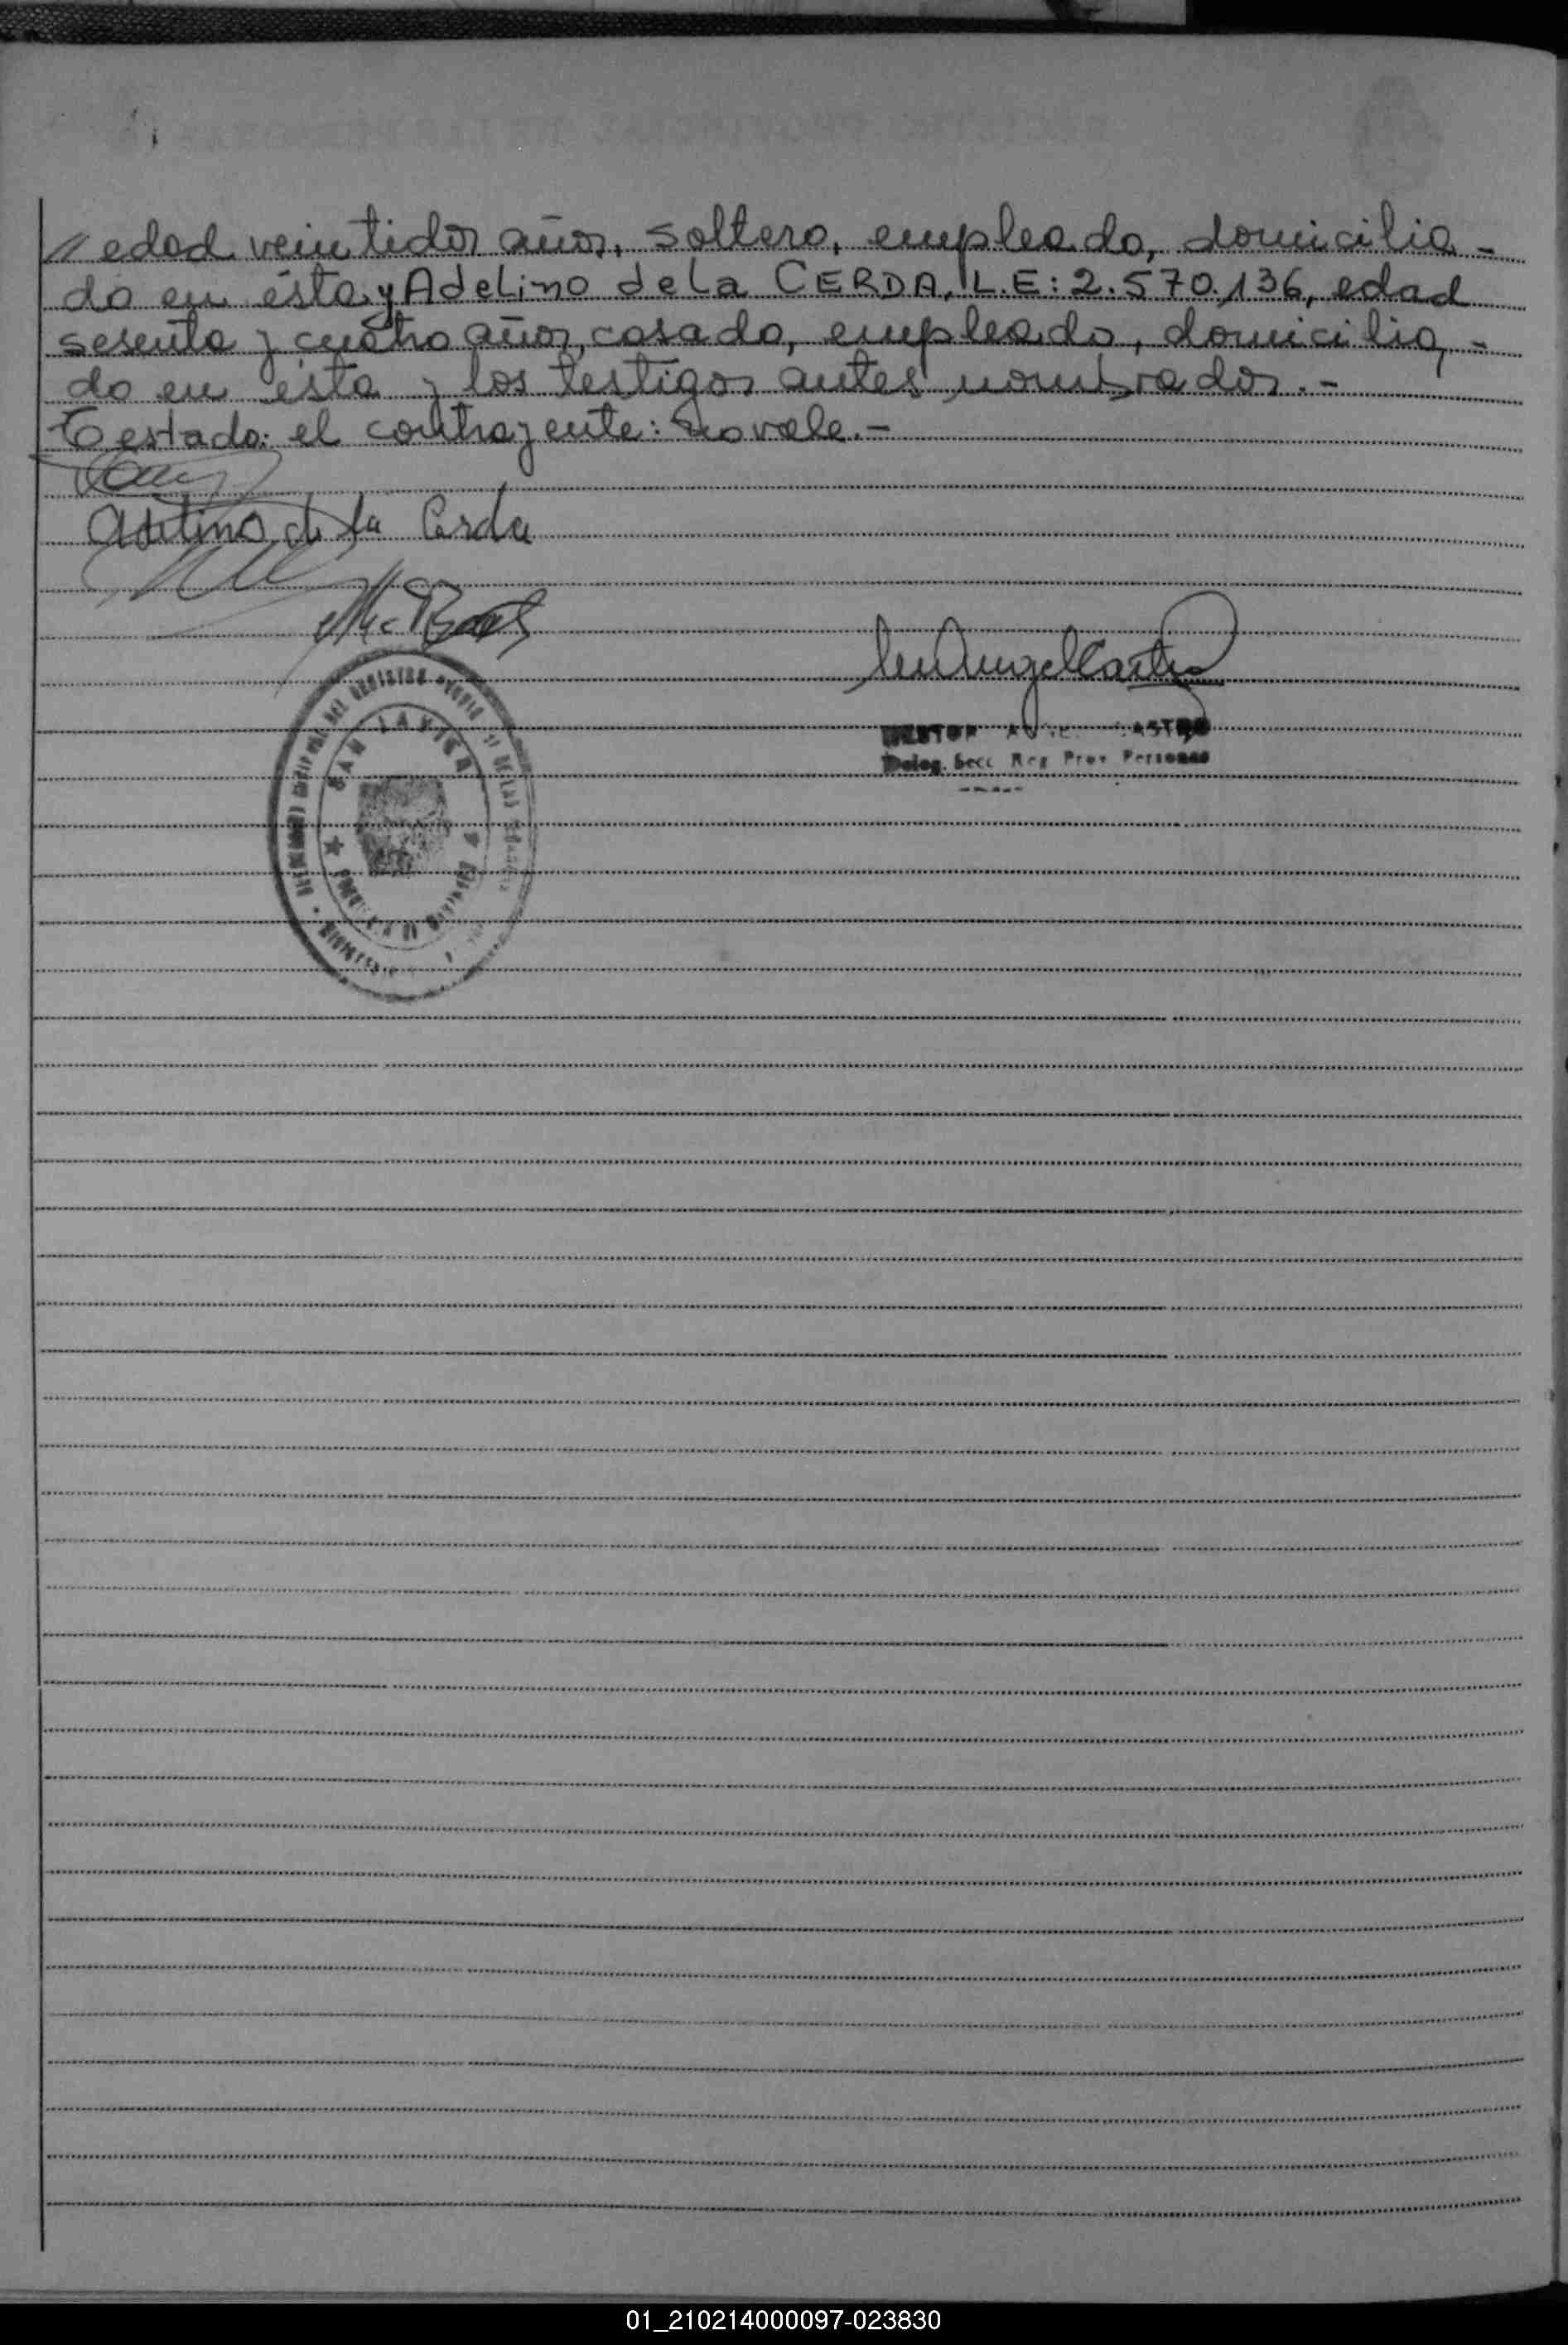 // edad veintidos años, soltero, empleado, domicilia-
do en ésta y Adelino de la CERDA, L.E: 2.570.136, edad
sesenta y cuatro años, casado, empleado, domicilia-
do en ésta y los testigos antes nombrados.-
Testado: el contrayente: No vale.-
Adelino de la Cerda
NESTOR CASTRO
Deleg. Secc Reg Prov Personas
SAN JAVIER
01_210214000097-023830